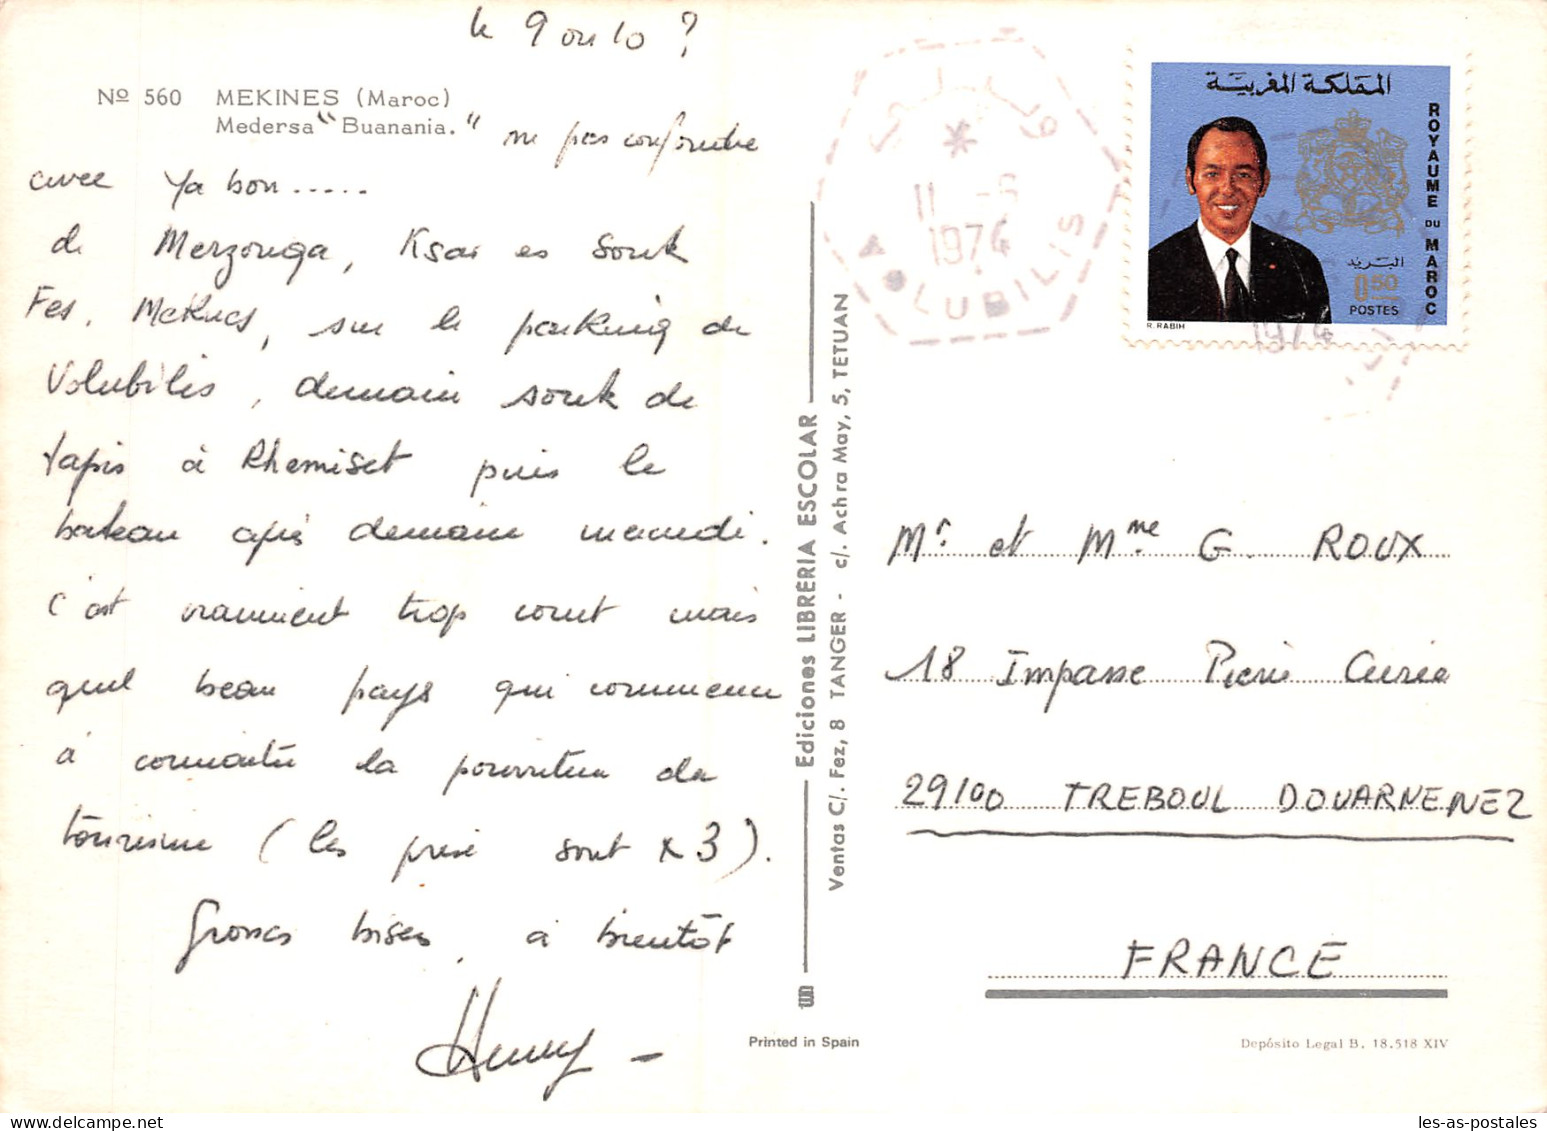 le 9 ou 10 ?
Nº 560 MEKINES (Maroc)
Medersa "Buanania."
ne pas confondre
avec Ya bon.....
de Merzouga, Ksar es Souk
Fes, Meknes, sur le parking de
Volubilis, demain souk de
tapis à Khemiset puis le
bateau après demain mardi.
C'est vraiment trop court mais
quel beau pays qui commence
à connaitre la pourriture du
tourisme (les prix sont x 3).
Grosses bises, à bientôt
Henry
Ediciones LIBRERIA ESCOLAR
Ventas C/. Fez, 8 TANGER - c/. Achra May, 5, TETUAN
Printed in Spain
وليلي
*
11 -6
1974
VOLUBILIS
المملكة المغربية
ROYAUME DU MAROC
البريد
0.50
POSTES
R. RABIH
1974
Mr. et Mme G. ROUX
18 Impasse Pierre Curie
29100 TREBOUL DOUARNENEZ
FRANCE
Depósito Legal B. 18.518 XIV
les-as-postales